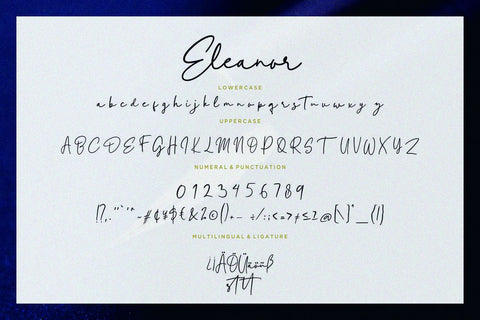 Eleanor
LOWERCASE
a b c d e f g h i j k l m n o p q r s t u v w x y z
UPPERCASE
A B C D E F G H I J K L M N O P Q R S T U V W X Y Z
NUMERAL & PUNCTUATION
0 1 2 3 4 5 6 7 8 9
MULTILINGUAL & LIGATURE